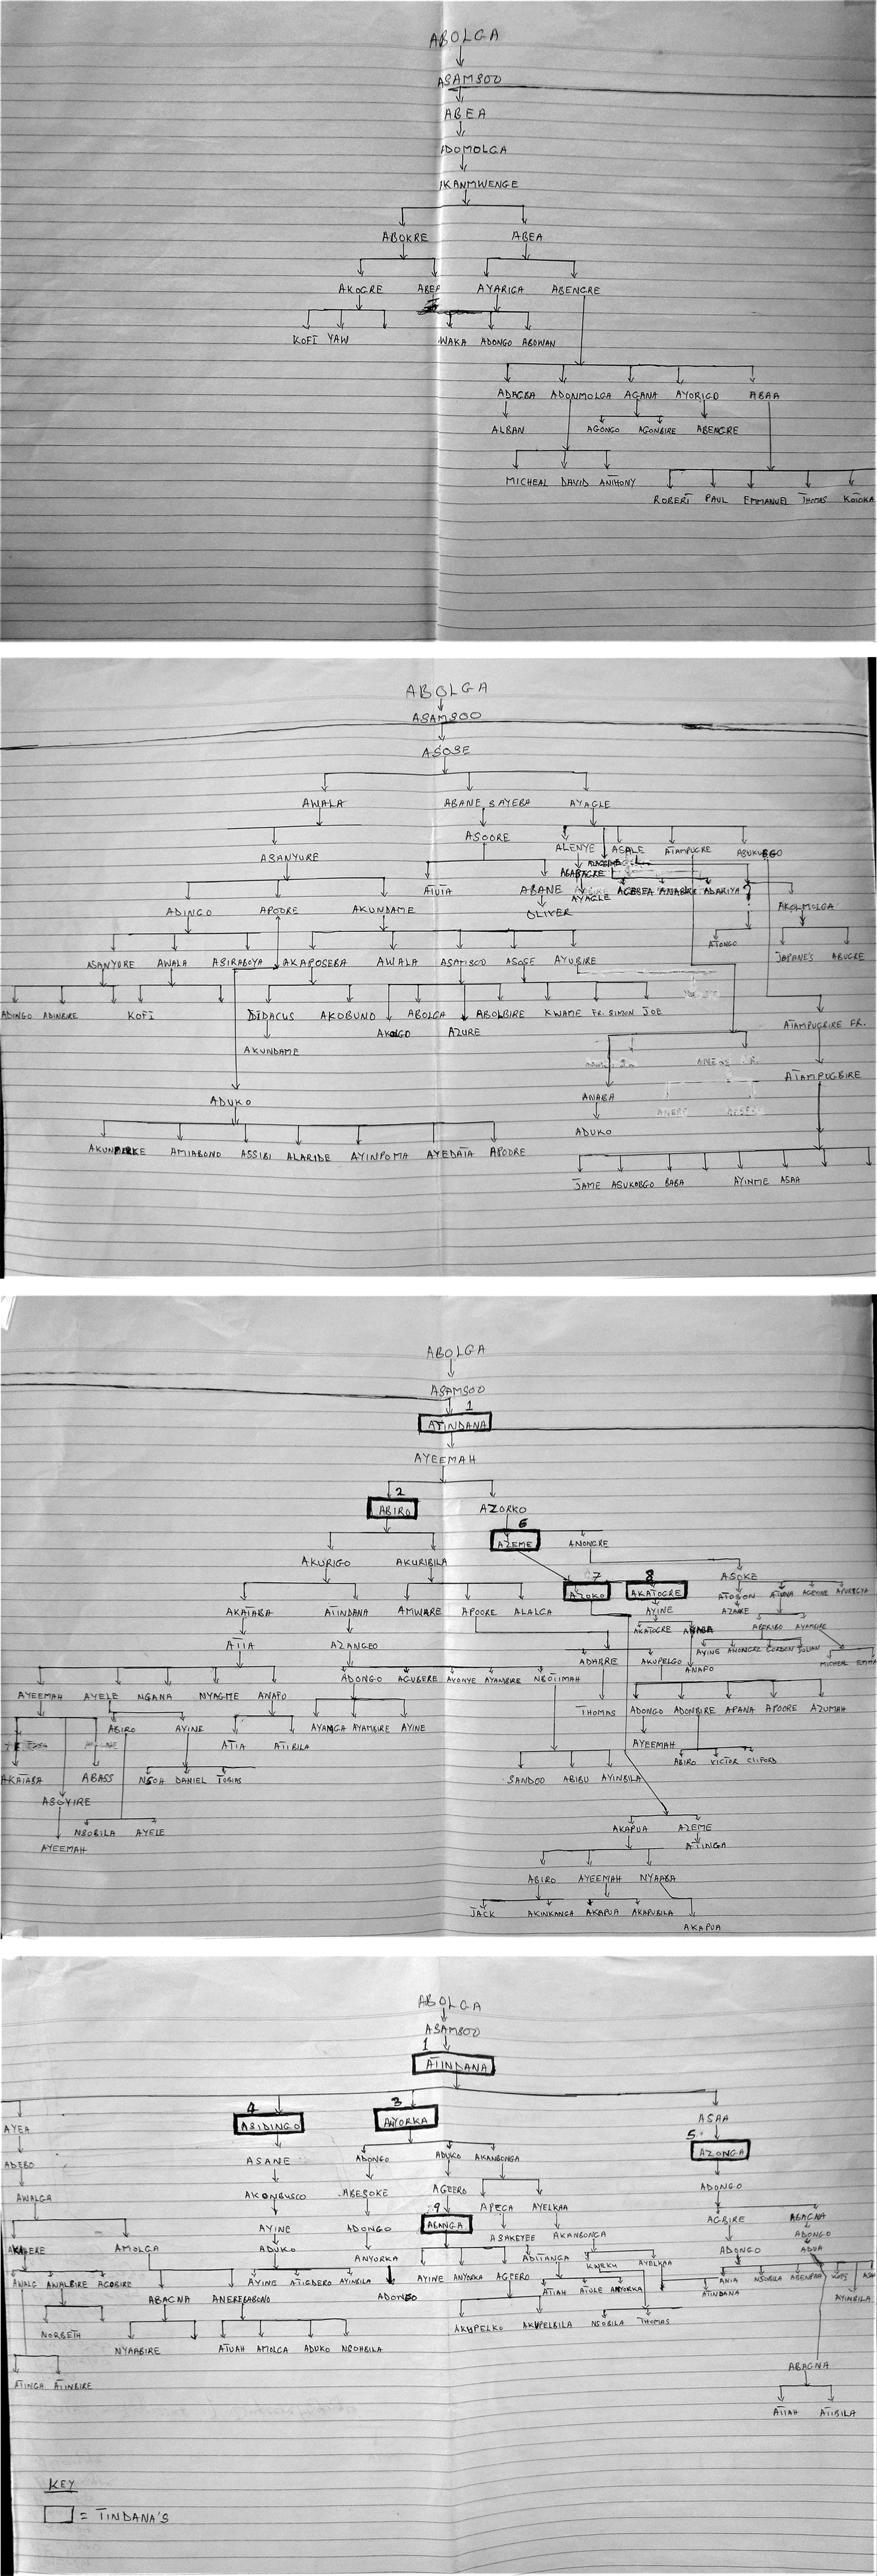 ABOLGA
ASAMSOO
ABEA
IDOMOLGA
IKANMWENGE
ABOKRE ABEA
AKOGRE ABEA AYARIGA ABENGRE
KOFI YAW WAKA ADONGO ABOWAN
ADAGBA ADONMOLGA AGANA AYORIGO ABAA
ALBAN AGONGO AGONBIRE ABENGRE
MICHEAL DAVID ANTHONY
ROBERT PAUL EMMANUEL THOMAS KOTOKA
ABOLGA
ASAMSOO
ASOSE
AWALA ABANE SAYEBA AYAGLE
ASANYURE ASOORE ALENYE ASALE ATAMPUGRE ASUKUBGO
AGABAGRE
ATUTA ABANE AYAGLE AGEBEA ANABIRE ADARIYA
ADINGO APOORE AKUNDAME OLIVER AKOLMOLGA
ATONGO
ASANYORE AWALA ASIRABOYA AKAPOSEBA AWALA ASAMSOO ASOSE AYUBIRE JAPANE'S ABUGRE
ADINGO ADINBIRE KOFI DIDACUS AKOBUNO ABOLGA ABOLBIRE KWAME FR. SIMON JOE
AKOLGO AZURE ATAMPUGBIRE FR.
AKUNDAME
ATAMPUGBIRE
ADUKO ANABA
ADUKO
AMIABONO ASSIBI ALARIDE AYINPOMA AYEDATA APOORE
JAME ASUKOBGO BABA AYINME ASAA
ABOLGA
ASAMSOO
1
ATINDANA
AYEEMAH
2
ABIRO AZORKO
6
AZEME ANONGRE
AKURIGO AKURIBILA
7 8 ASOKE
AZOKO AKATOGRE ATOBON ATUNA AGEONE AYUREGYA
AKATABA ATINDANA AMWARE APOORE ALALGA AYINE AZAARE
AKATOGRE ANABA ABERIBO AYAMBIRE
ATIA AZANGEO AYINE ANONGRE GORDON JULIAN
ADARRE AKUPELGO ANAFO MICHEAL EMMA
AYEEMAH AYELE NGANA NYAGME ANAFO ADONGO AGUBERE AVONYE AYAMBIRE NBOTIMAH
THOMAS ADONGO ADONBIRE APANA APOORE AZUMAH
ABIRO AYINE AYAMGA AYAMBIRE AYINE
ATIA ATIBILA AYEEMAH
ABIRO VICTOR CLIFORD
AKATABA ABASS NSOH DANIEL TOBIAS SANDOO ABIBU AYINBILA
ASOYIRE
NSOBILA AYELE AKAPUA AZEME
AYEEMAH ATINGA
ABIRO AYEEMAH NYAABA
JACK AKINKANGA AKAPUA AKAPUBILA
AKAPUA
ABOLGA
ASAMSOO
1
ATINDANA
4 3
AYEA ABIDINGO ANYORKA ASAA
5
AZONGA
ADEBO ASANE ADONGO ADUKO AKANBONGA
AWALGA AKONBUSCO ABESOKE AGEERO ADONGO
9 APEGA AYELKAA
AYINE ADONGO ABANGA AGBIRE ABAGNA
ASAKEYEE AKANBONGA ADONGO
AKABERE AMOLGA ADUKO ANYORKA ADITANGA KURKU AYELKAA ADONGO ADUA
AWALG AWALBIRE AGOBIRE AYINE ATIGBERO AYINBILA AYINE ANYORKA AGEERO ATIAH ATULE ANYORKA ANIA NSOBILA ABENPAA KOFI
ATINDANA
ABAGNA ANEREGABONO ADONGO AYINBILA
NORBETH AKUPELKO AKUPELBILA NSOBILA THOMAS
NYAABIRE ATUAH AMOLGA ADUKO NSOHBILA
ATINGA ATINBIRE ABAGNA
ATIAH ATIBILA
KEY
= TINDANA'S